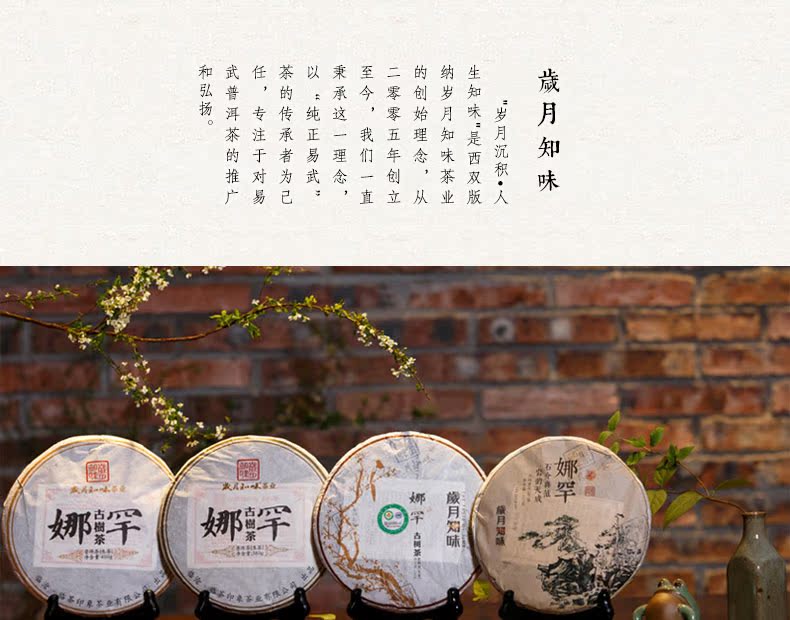 歲月知味
"岁月沉积•人
生知味"是西双版
纳岁月知味茶业
的创始理念，从
二零零五年创立
至今，我们一直
秉承这一理念，
以"纯正易武"
茶的传承者为己
任，专注于对易
武普洱茶的推广
和弘扬。
歲月知味茶业
娜罕
古樹茶
歲月知味茶业
娜罕
古樹茶
娜罕
古樹茶
歲月知味
娜罕
歲月知味